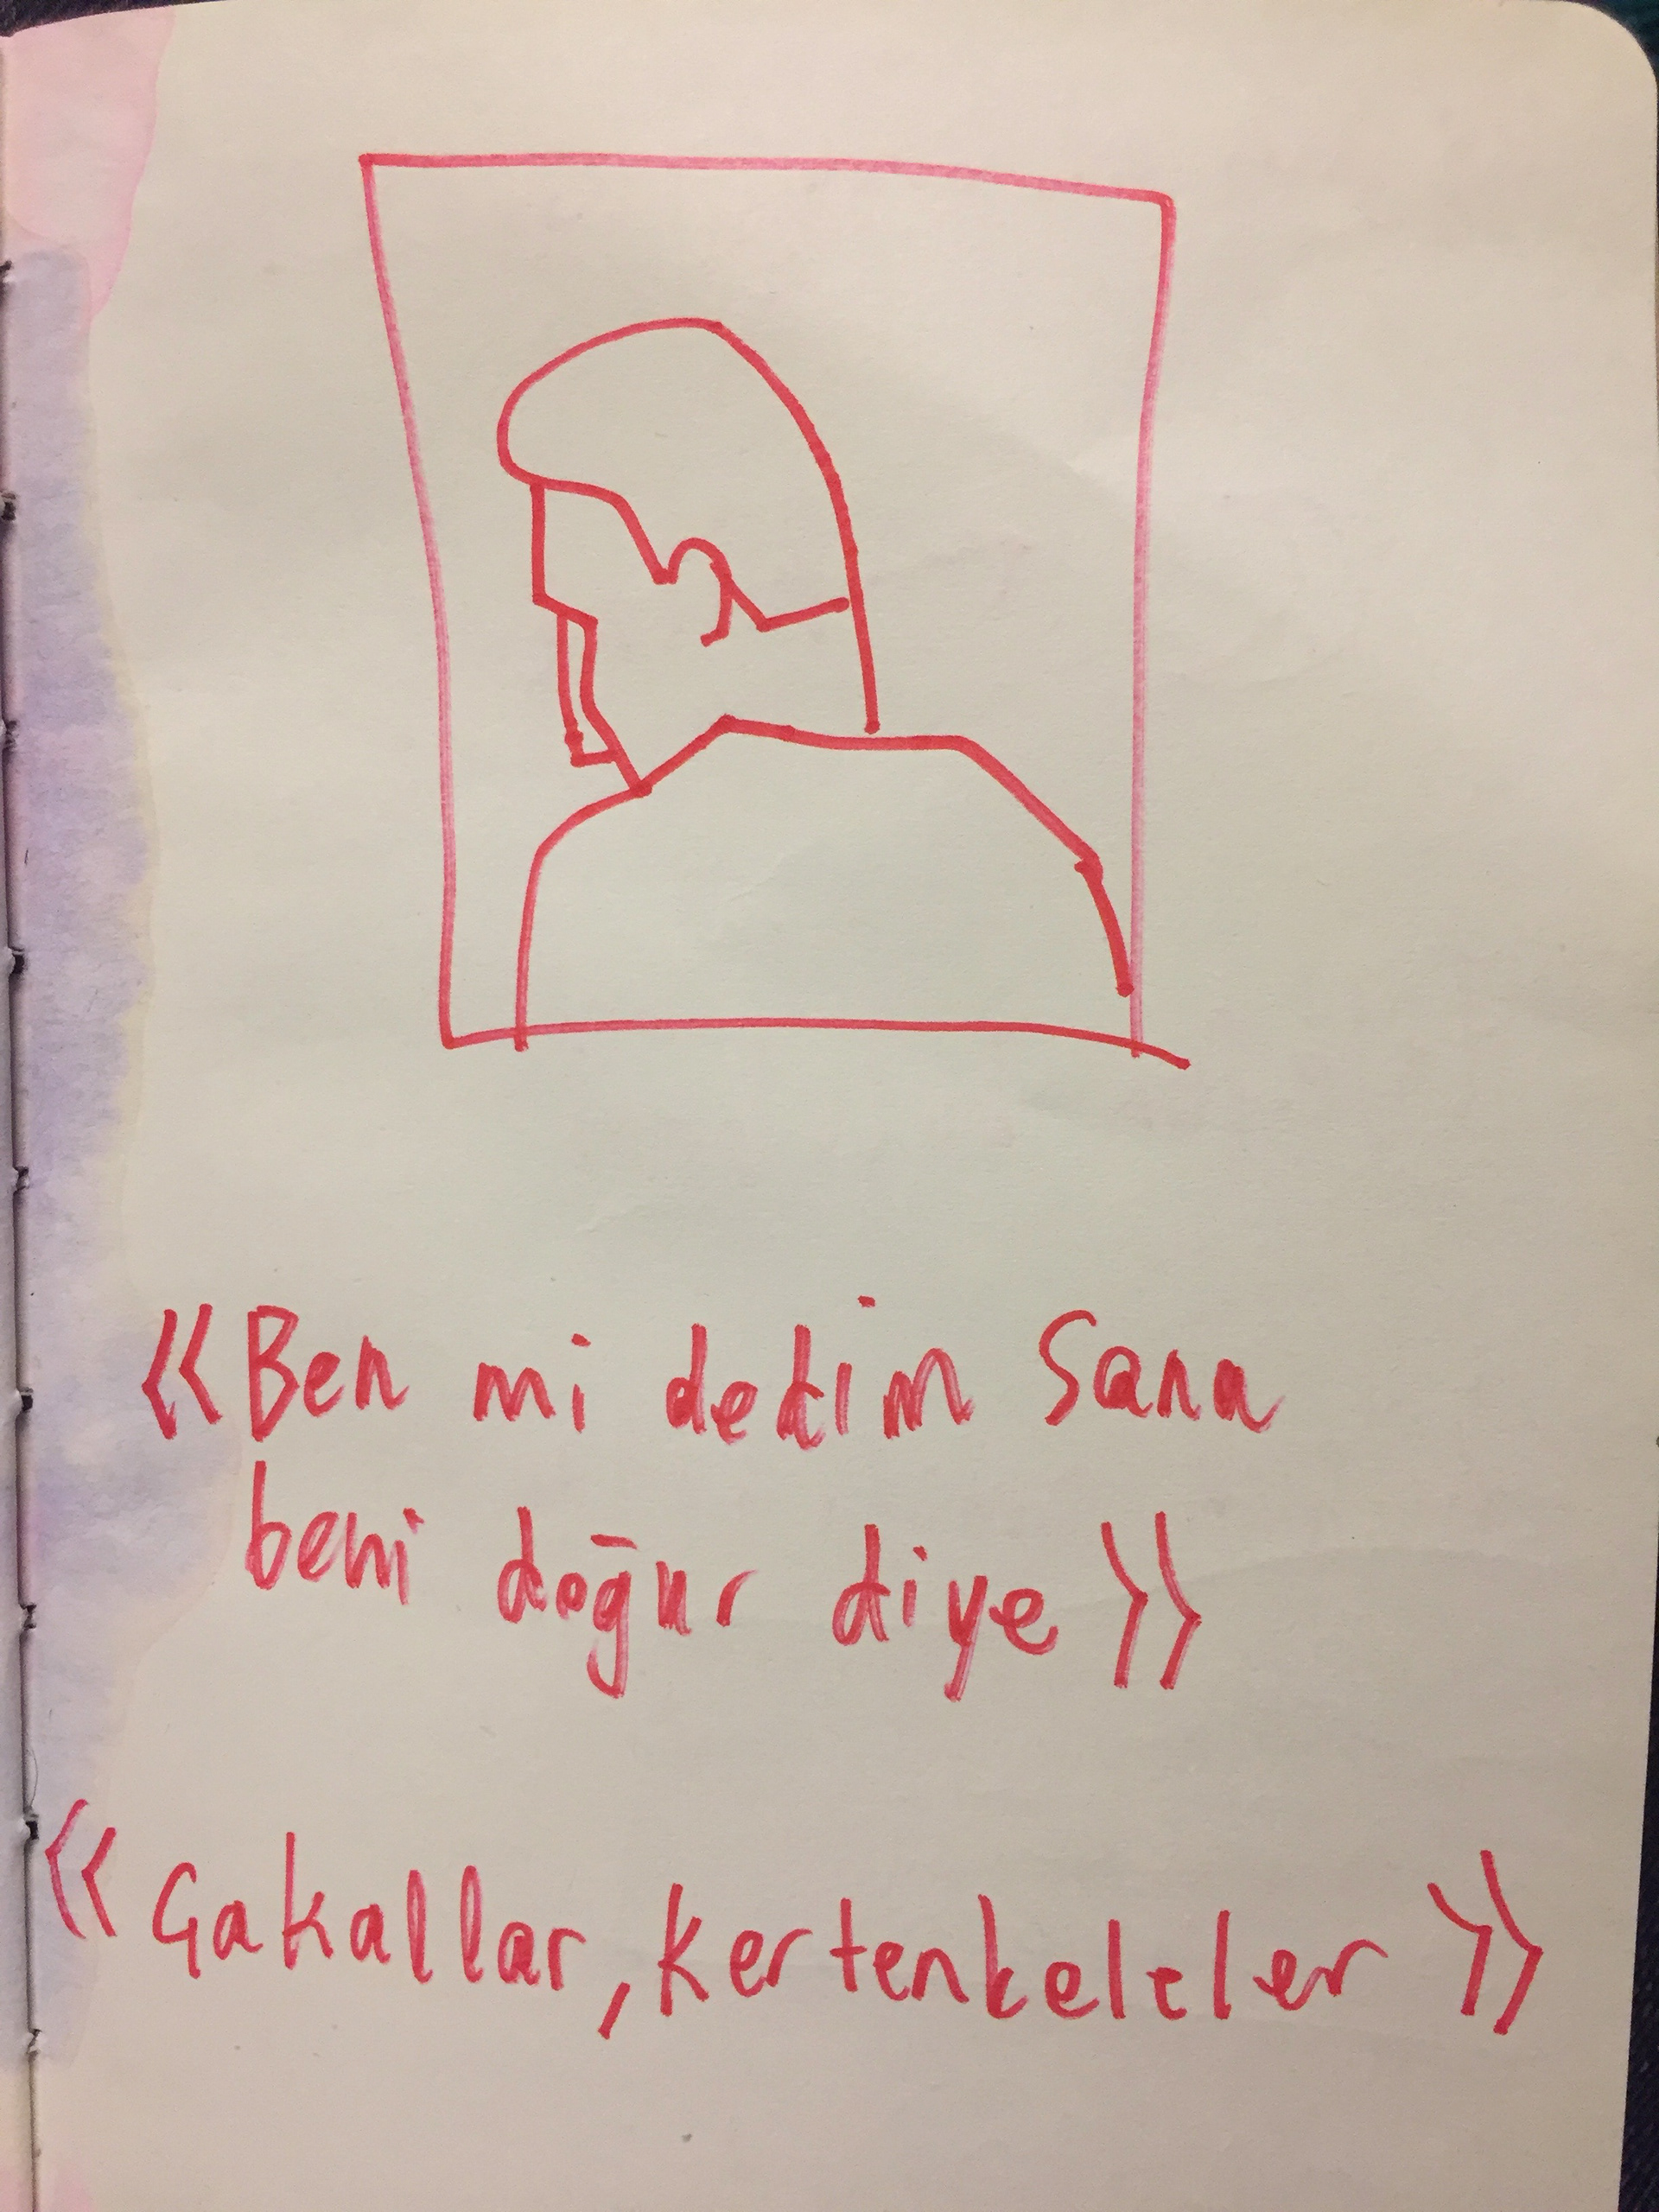 «Ben mi dedim Sana
beni doğur diye»
«Çakallar, kertenkeleler»